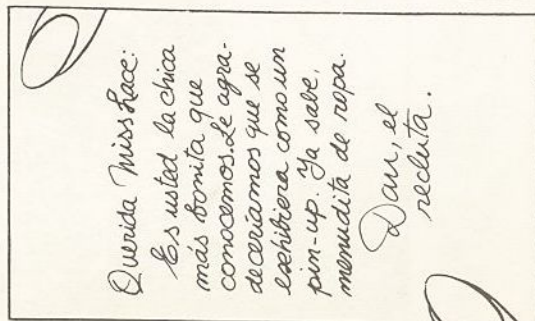 Querida Miss Lace:
Es usted la chica
más bonita que
conocemos. Le agra-
deceríamos que se
exhibiera como un
pin-up. Ya sabe,
menudita de ropa.
Dan, el
recluta.